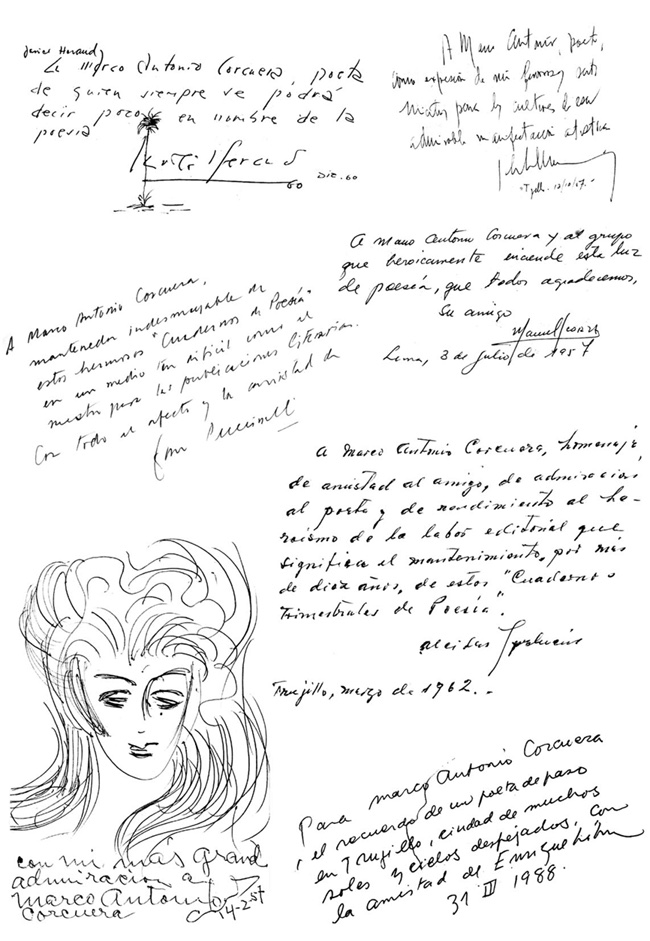 Javier Heraud
A Marco Antonio Corcuera, poeta
de quien siempre se podrá
decir poco en nombre de la
poesía
60 DIC. 60
A Marco Antonio, poeta,
como expresión de mi
para los cultores de esa
admirable manifestación
A Marco Antonio Corcuera y al grupo
que heroicamente enciende esta luz
de poesía, que todos agradecemos,
Su amigo
Manuel Scorza
Lima, 3 de julio de 1957
A Marco Antonio Corcuera,
mantenedor indesmayable de
estos hermosos "Cuadernos de Poesía"
en un medio tan difícil como el
nuestro para las publicaciones literarias.
Con todo el afecto y la amistad de
A Marco Antonio Corcuera, homenaje
de amistad al amigo, de admiración
al poeta y de rendimiento al he-
roismo de la labor editorial que
significa el mantenimiento, por más
de diez años, de estos "Cuadernos
Trimestrales de Poesía".
Alcides Spelucín
Trujillo, marzo de 1962.-
con mi más grand
admiración a
Marco Antonio
Corcuera
Para Marco Antonio Corcuera
el recuerdo de un poeta de paso
en Trujillo, ciudad de muchos
soles y cielos despejados, con
la amistad de Enrique Lihn
31 III 1988.